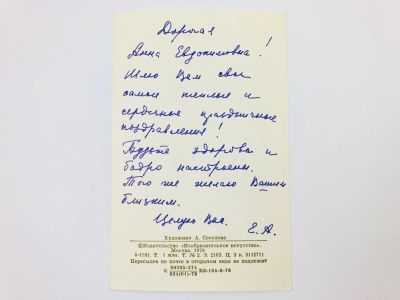 Дорогая
Анна Евдокимовна!
Шлю Вам свои
самые теплые и
сердечные праздничные
поздравления!
Будьте здоровы и
бодро настроены.
Того же желаю Вашим
близким.
Целую Вас.
Е. А.
Художник А. Соколова
©Издательство «Изобразительное искусство».
Москва. 1979
Пересылке по почте в открытом виде не подлежит